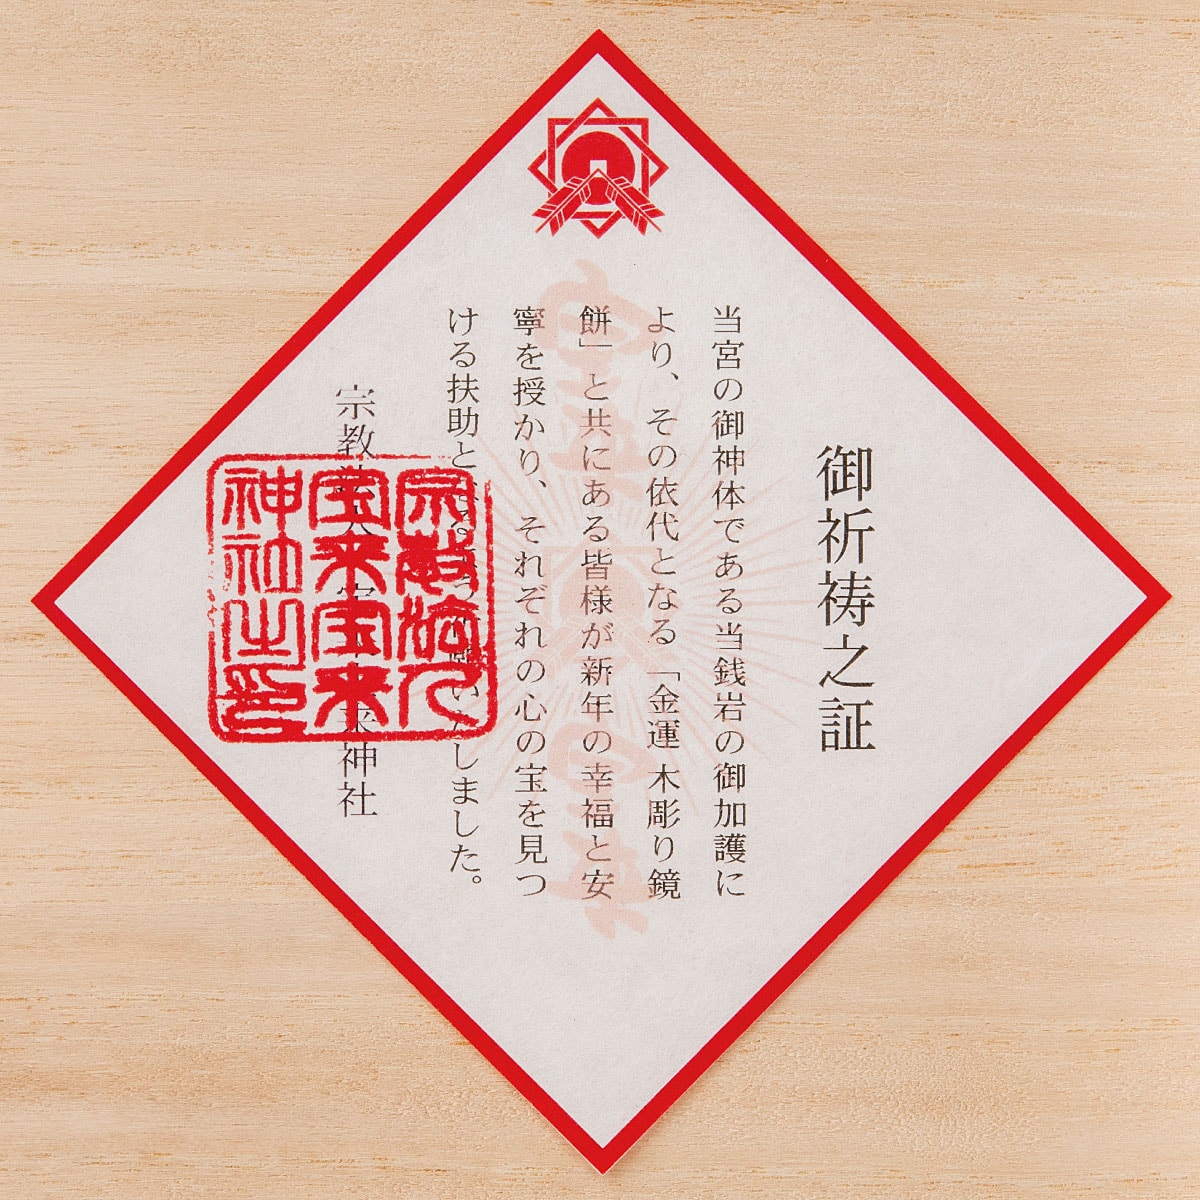 御祈祷之証
当宮の御神体である当銭岩の御加護に
より、その依代となる「金運 木彫り鏡
餅」と共にある皆様が新年の幸福と安
寧を授かり、それぞれの心の宝を見つ
ける扶助と いたしました。
宗教法人 宝来宝来神社
宗教法人
宝来宝来
神社之印